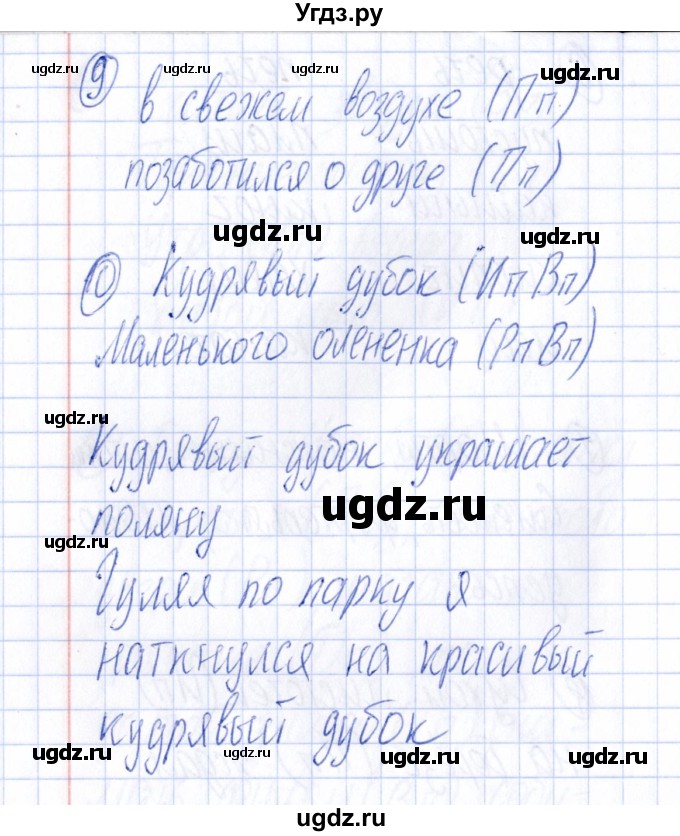 Угдз.ру
9 в свежем воздухе (Пп)
позаботился о друге (Пп)
10 Кудрявый дубок (Ип Вп)
Маленького олененка (Рп Вп)
Кудрявый дубок украшает
поляну
Гуляя по парку я
наткнулся на красивый
кудрявый дубок
ugdz.ru
ugdz.ru
ugdz.ru
ugdz.ru
ugdz.ru
ugdz.ru
ugdz.ru
ugdz.ru
ugdz.ru
ugdz.ru
ugdz.ru
ugdz.ru
ugdz.ru
ugdz.ru